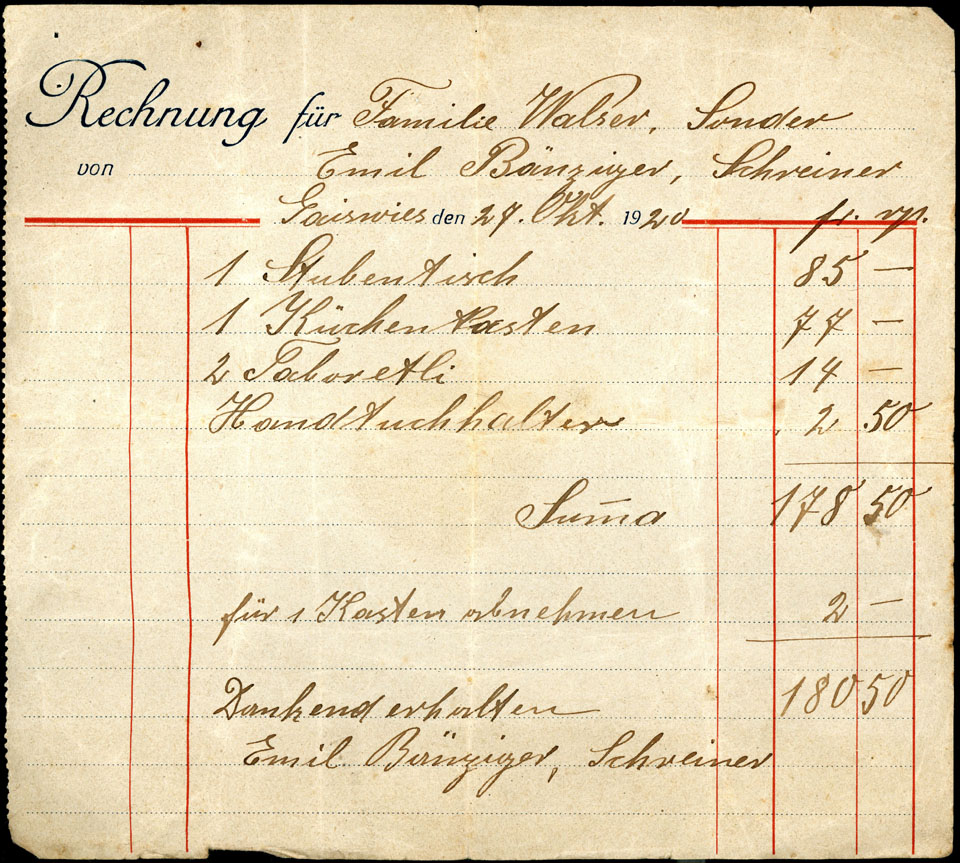 Rechnung für Familie Walser, Sonder
von Emil Bänziger, Schreiner
Gaiswies den 27. Okt. 1920 fr. rp.
1 Stubentisch 85 —
1 Küchenkasten 77 —
2 Taboretli 14 —
Handtuchhalter 2 50
Sum̄a 178 50
für 1 Kasten abnehmen 2 —
180 50
Dankend erhalten
Emil Bänziger, Schreiner